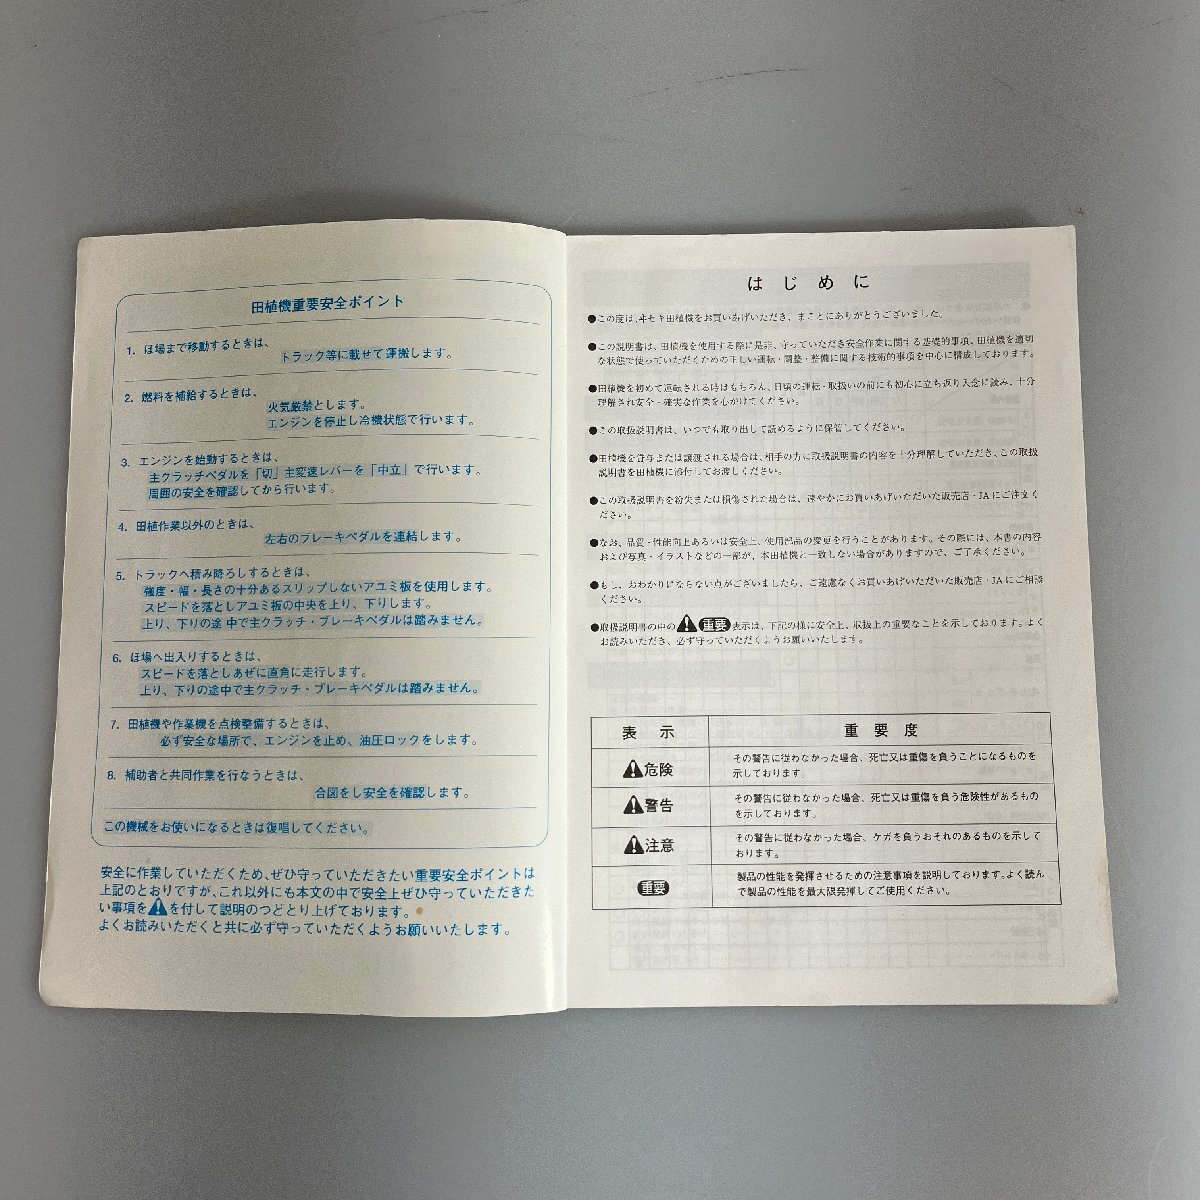 田植機重要安全ポイント
1. ほ場まで移動するときは、
トラック等に載せて運搬します。
2. 燃料を補給するときは、
火気厳禁とします。
エンジンを停止し冷機状態で行います。
3. エンジンを始動するときは、
主クラッチペダルを「切」主変速レバーを「中立」で行います。
周囲の安全を確認してから行います。
4. 田植作業以外のときは、
左右のブレーキペダルを連結します。
5. トラックへ積み降ろしするときは、
強度・幅・長さの十分あるスリップしないアユミ板を使用します。
スピードを落としアユミ板の中央を上り、下りします。
上り、下りの途中で主クラッチ・ブレーキペダルは踏みません。
6. ほ場へ出入りするときは、
スピードを落としあぜに直角に走行します。
上り、下りの途中で主クラッチ・ブレーキペダルは踏みません。
7. 田植機や作業機を点検整備するときは、
必ず安全な場所で、エンジンを止め、油圧ロックをします。
8. 補助者と共同作業を行なうときは、
合図をし安全を確認します。
この機械をお使いになるときは復唱してください。
安全に作業していただくため、ぜひ守っていただきたい重要安全ポイントは
上記のとおりですが、これ以外にも本文の中で安全上ぜひ守っていただきた
い事項を⚠を付して説明のつどとり上げております。
よくお読みいただくと共に必ず守っていただくようお願いいたします。
はじめに
●この度は、ヰセキ田植機をお買いあげいただき、まことにありがとうございました。
●この説明書は、田植機を使用する際に是非、守っていただき安全作業に関する基礎的事項、田植機を適切
な状態で使っていただくための正しい運転・調整・整備に関する技術的事項を中心に構成しております。
●田植機を初めて運転される時はもちろん、日頃の運転・取扱いの前にも初心に立ち返り入念に読み、十分
理解され安全・確実な作業を心がけてください。
●この取扱説明書は、いつでも取り出して読めるように保管してください。
●田植機を貸与または譲渡される場合は、相手の方に取扱説明書の内容を十分理解していただき、この取扱
説明書を田植機に添付してお渡しください。
●この取扱説明書を紛失または損傷された場合は、速やかにお買いあげいただいた販売店・JAにご注文く
ださい。
●なお、品質・性能向上あるいは安全上、使用部品の変更を行うことがあります。その際には、本書の内容
および写真・イラストなどの一部が、本田植機と一致しない場合がありますので、ご了承ください。
●もし、おわかりにならない点がございましたら、ご遠慮なくお買いあげいただいた販売店・JAにご相談
ください。
●取扱説明書の中の⚠重要表示は、下記の様に安全上、取扱上の重要なことを示しております。よく
お読みいただき、必ず守っていただくようお願いいたします。
表示 重要度
⚠危険 その警告に従わなかった場合、死亡又は重傷を負うことになるものを
示しております。
⚠警告 その警告に従わなかった場合、死亡又は重傷を負う危険性があるもの
を示しております。
⚠注意 その警告に従わなかった場合、ケガを負うおそれのあるものを示して
おります。
重要 製品の性能を発揮させるための注意事項を説明しております。よく読ん
で製品の性能を最大限発揮してご使用ください。